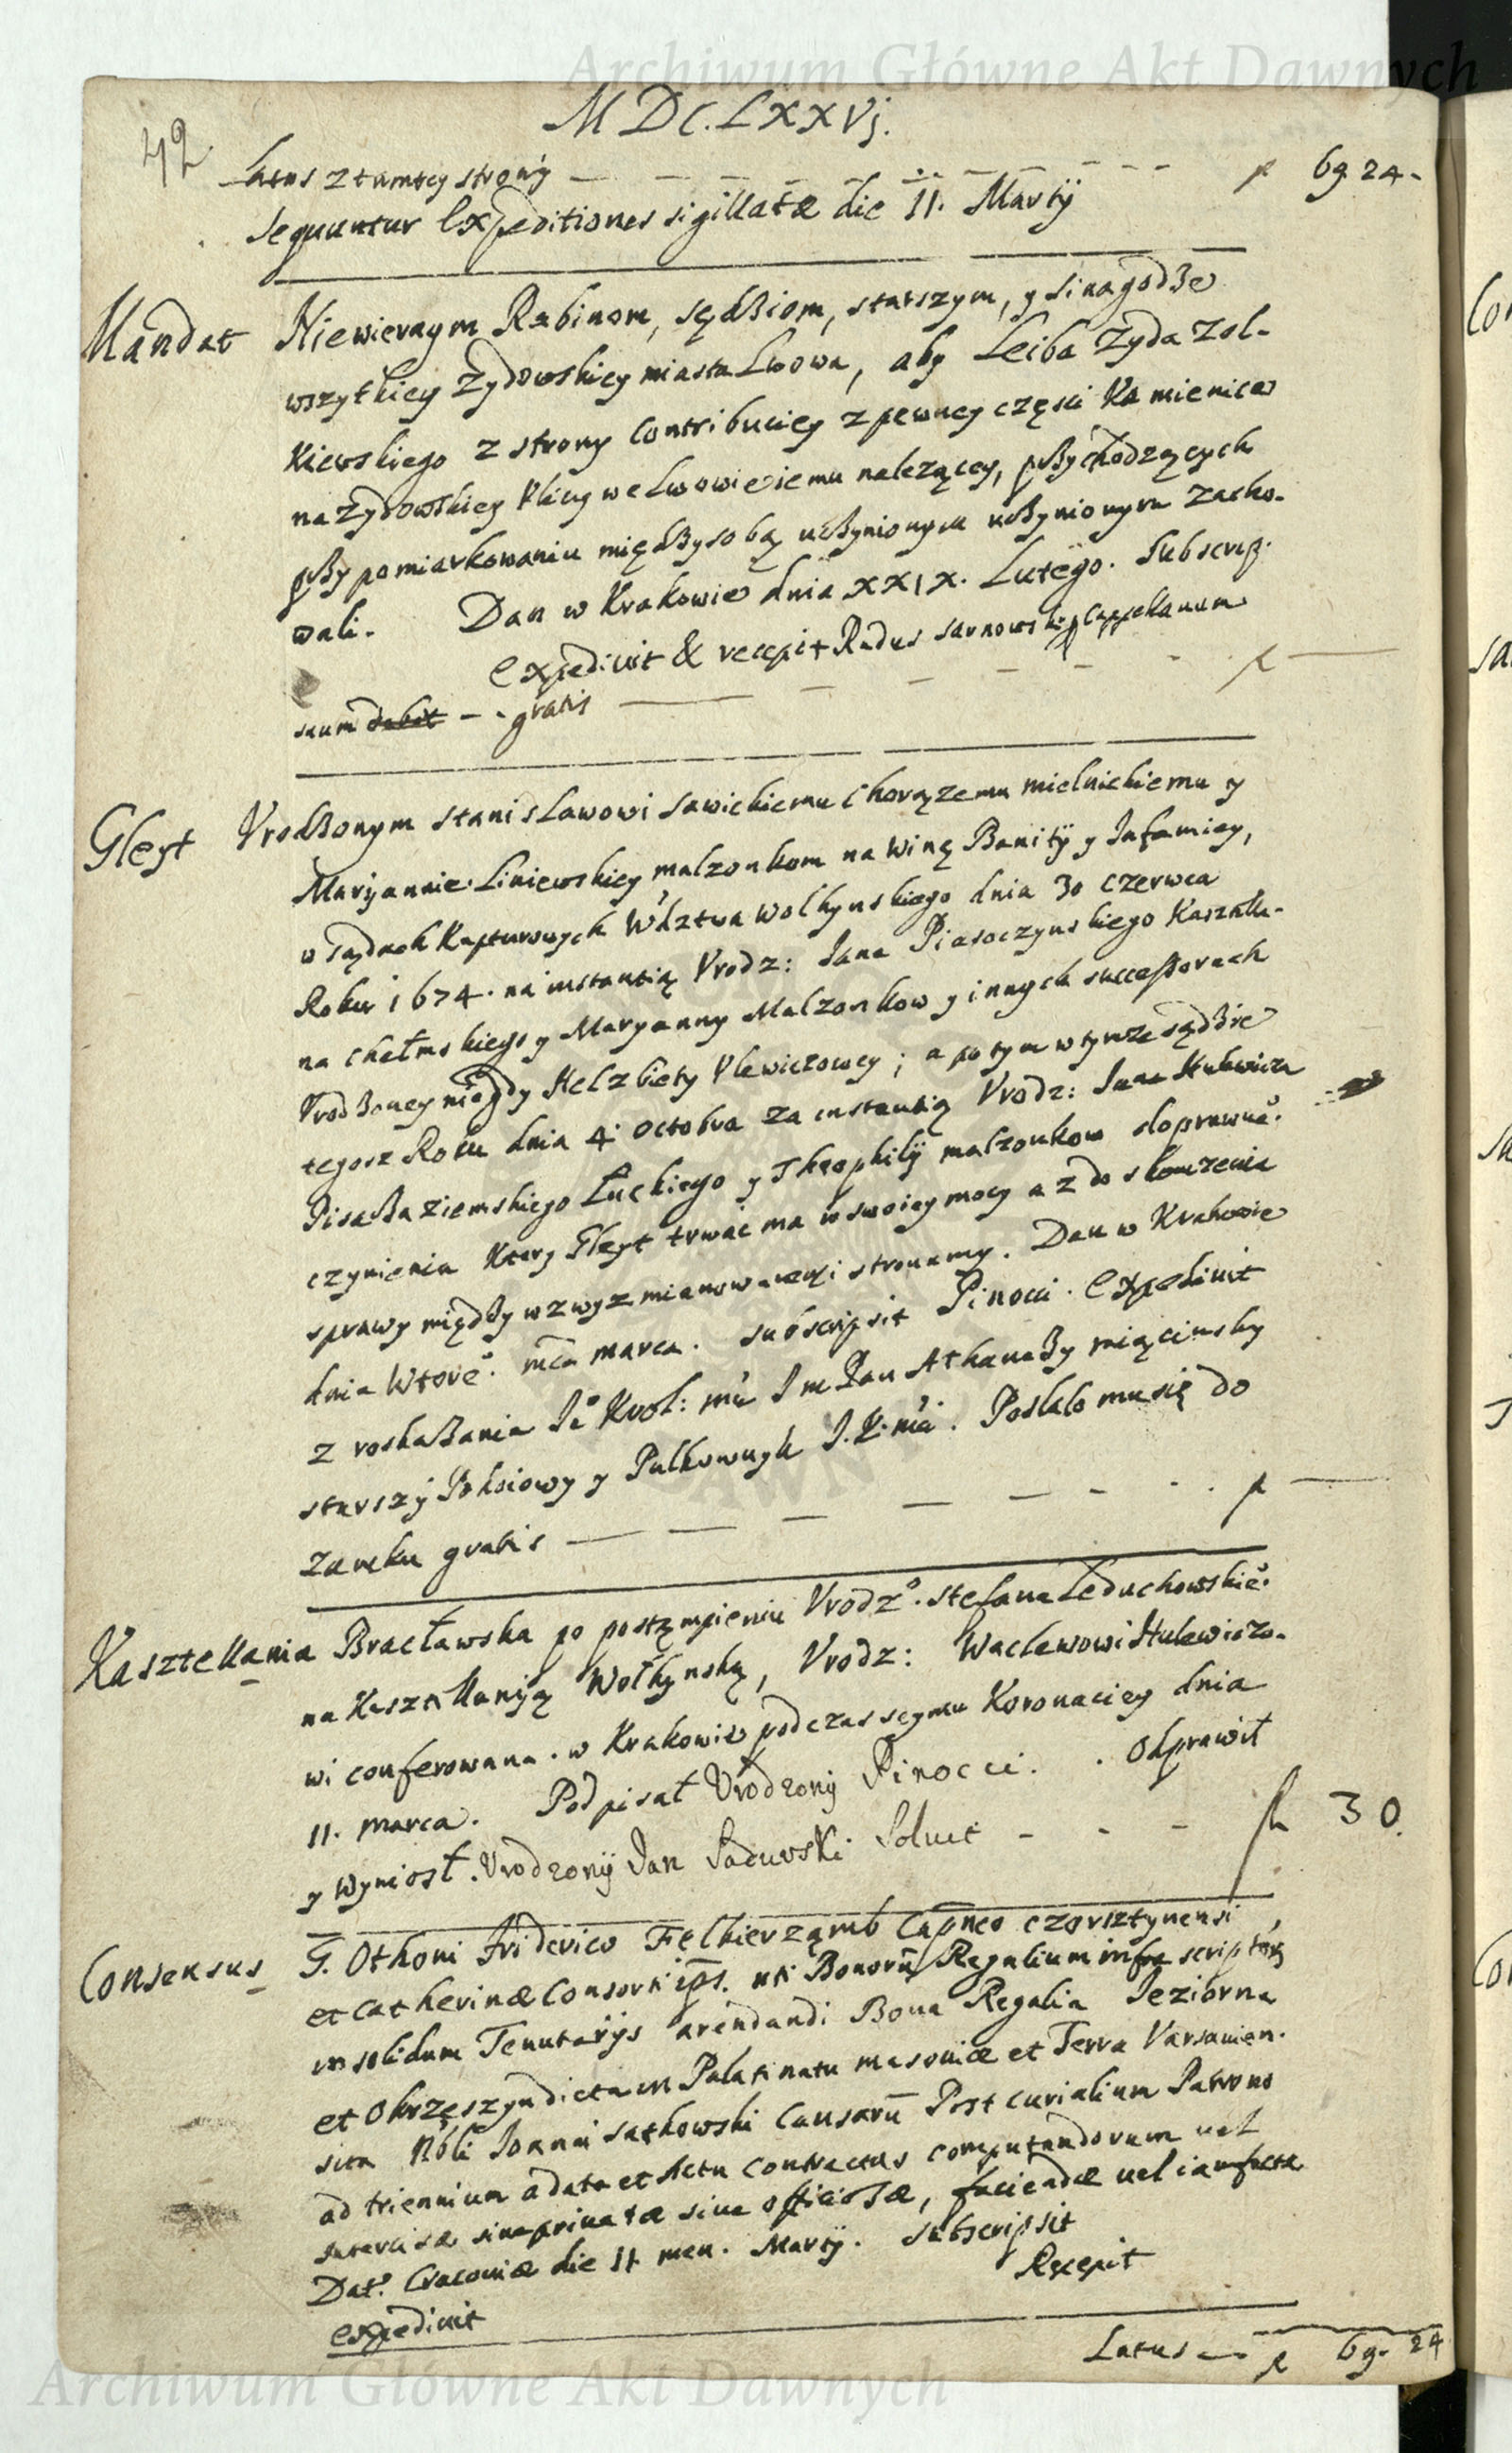 Archiwum Główne Akt Dawnych
MDC.LXXVj.
42
Latus z tamtey strony — — — — — — — p 69 24-
Sequuntur Expeditiones sigillatæ die 11. Martÿ
Mandat Niewiernym Rabinom, sędziom, starszym, y sinagodze
wszytkiey żydowskiey miasta Lwowa, aby Leiba Zyda Zol-
kiewskiego z strony Contribuciey z pewney częsci Kamienice
na żydowskiey Ulicy we Lwowie iemu nalezącey, przychodzących
przy pomiarkowaniu między sobą uczynionym uczynionym zacho-
wali. Dan w Krakowie dnia XXIX. Lutego. Subscrip.
Expedivit & recepit Radus Sarnowski p Cappellanum
suum dabit - - gratis — — — p —
Gleyt Vrodzonym Stanislawowi Sawickiemu Chorązemu mielnickiemu y
Maryannie Liniewskiey malzonkom na winę Banitÿ y Infamiey,
w sądach Kapturowych Wdztwa Wolhynskiego dnia 30 Czerwca
Roku 1674. na instantią Vrodz: Jana Piasoczynskiego Kasztella-
na chełmskiego y Maryanny Malzonkow y innych successorach
Vrodzoney niegdy Helzbiety Ulewiczowey; a potym w tymze sądzie
tegosz Roku dnia 4. Octobra za instantią Vrodz: Jana Hulewicza
Pisarza ziemskiego Łuckiego y Theophilÿ malzonkow doprawne°.
czynienia Ktory Gleyt trwac ma w swoiey mocy az do skonczenia
sprawy między wzwyz mianowanemi stronamy. Dan w Krakowie
dnia Wtore°. mca marca. subscripsit Pinocci. Expedivit
z roskazania Je° Krol: mci Jm Pan Athanazy miącinsky
starszy Pokoiowy y Pulkownyk J.K.mci. Poslalo mu się do
zamku gratis — — — — — . . p —
Kasztellania Bracławska po postąmpieniu Vrodz°. Stefana Leduchowskie°.
na Kasztellaniją Wołhynską, Vrodz: Waclawowi Hulewiczo-
wi conferowana. w Krakowie podczas seymu Koronaciey dnia
11. marca. Podpisał Urodzony Pinocci. . Odprawił
y wyniosł. Urodzonÿ Jan Sadowski Soluit - - - fl 30.
Consensus G. Othoni Friderico Felkierzamb Capneo Czorsztynensi,
et Catherinæ Consorti ips. uti Bonorū Regalium infra scriptorū
in solidum Tenutarijs arendandi Bona Regalia Jeziorna
et Okrzeszyn dicta in Palatinatu masoviæ et Terra Varsavien.
sita Nobli Joanni Satkowski Causarū Post curialium Patrono
ad triennium a data et Actu contractus computandorum vel
Intercisæ sive privatæ sive officiosæ, faciendæ vel iam factæ
Dat. Cracoviæ die 11 men. Martÿ. Subscripsit
expedivit Recepit
Latus — p 69. 24
Archiwum Główne Akt Dawnych